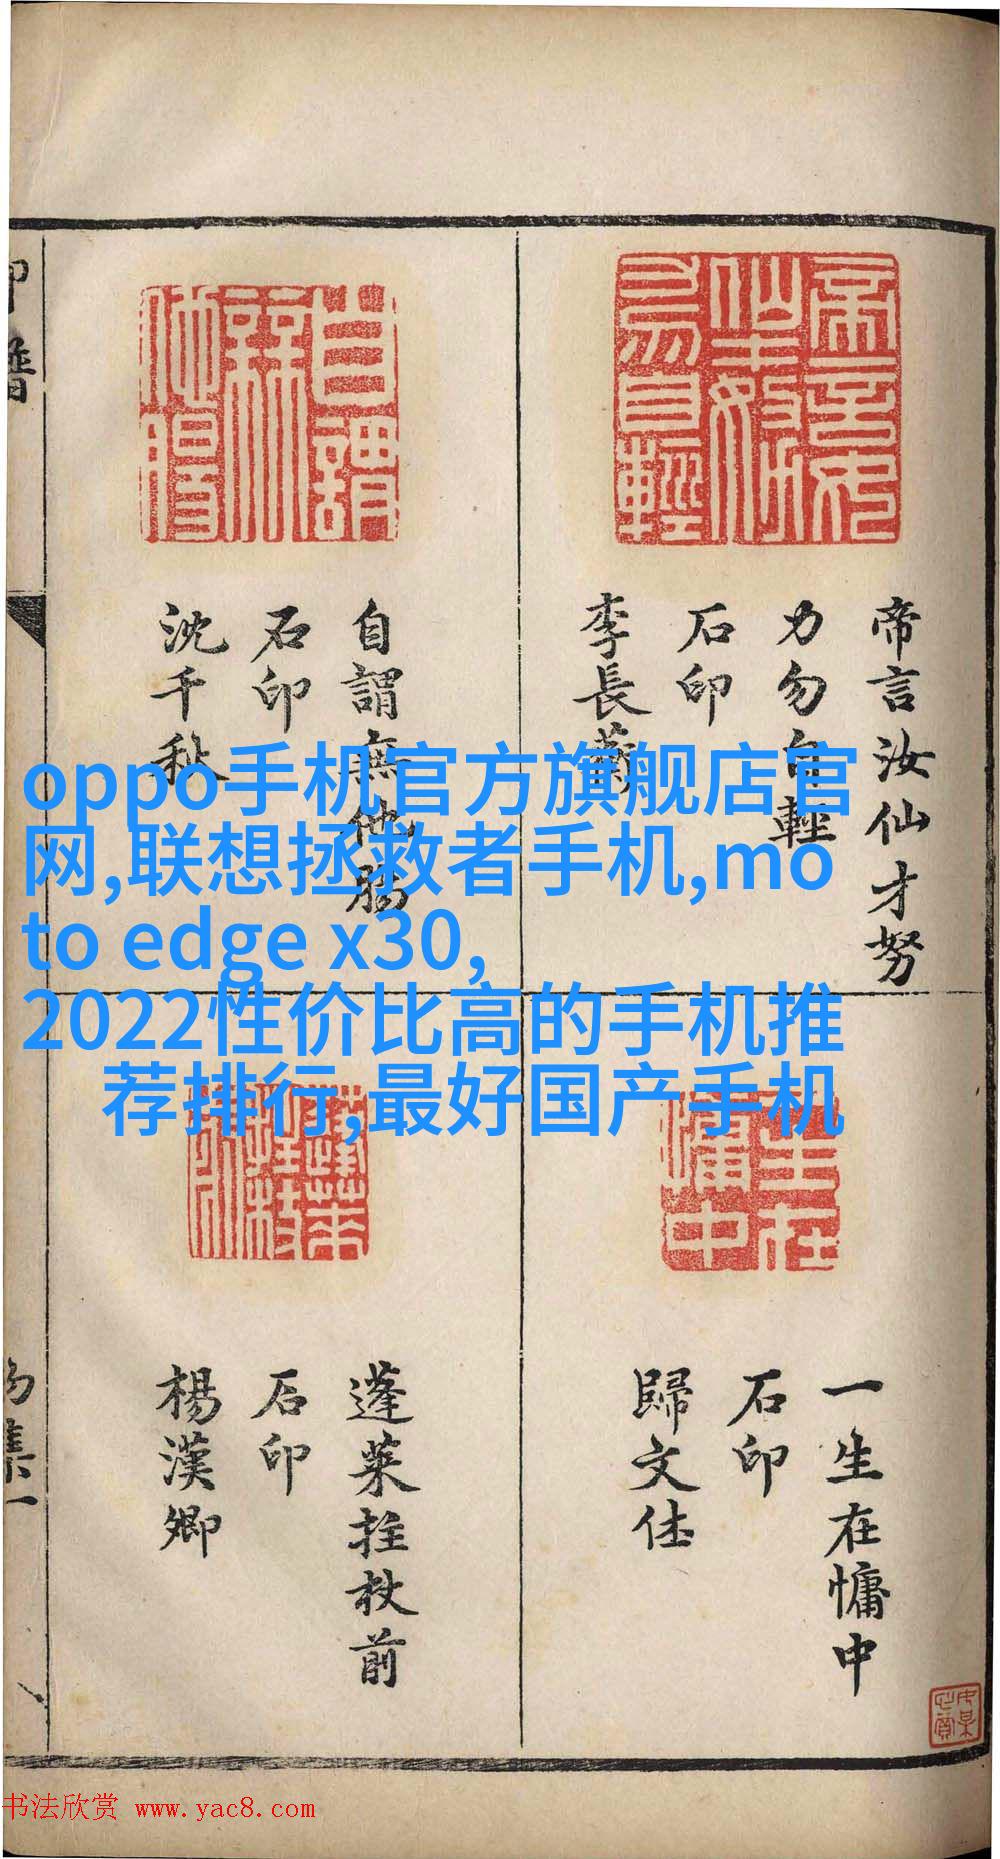 帝言汝仙才努
力勿自輕
石印
李長蘅
自謂無他腸
石印
沈千秋
oppo手机官方旗舰店官
网,联想拯救者手机,mo
to edge x30,
2022性价比高的手机推
荐排行,最好国产手机
一生在慵中
石印
歸文休
蓬萊拄杖前
石印
楊漢卿
书法欣赏 www.yac8.com